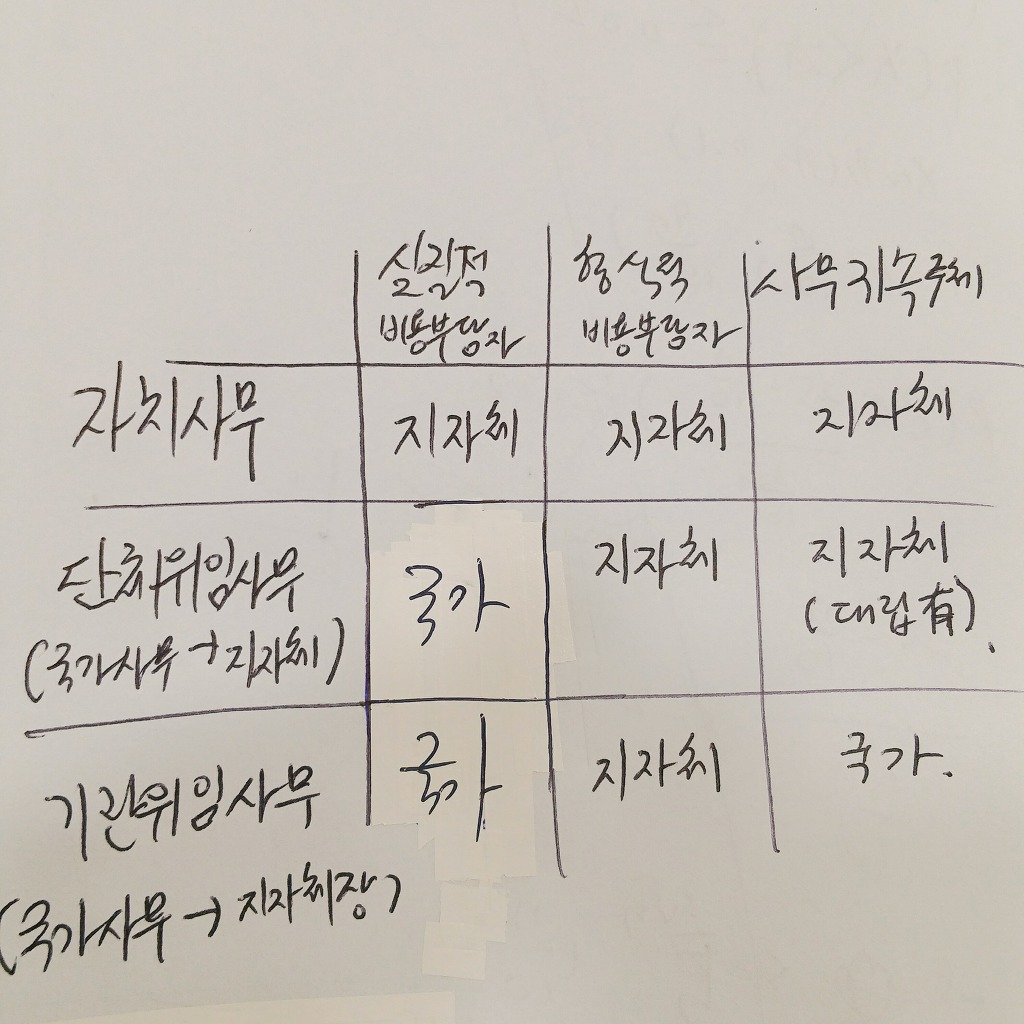 실질적 형식적 사무귀속주체
비용부담자 비용부담자
자치사무 지자체 지자체 지자체
단체위임사무 국가 지자체 지자체
(국가사무→지자체) (대립有).
기관위임사무 국가 지자체 국가.
(국가사무→지자체장)